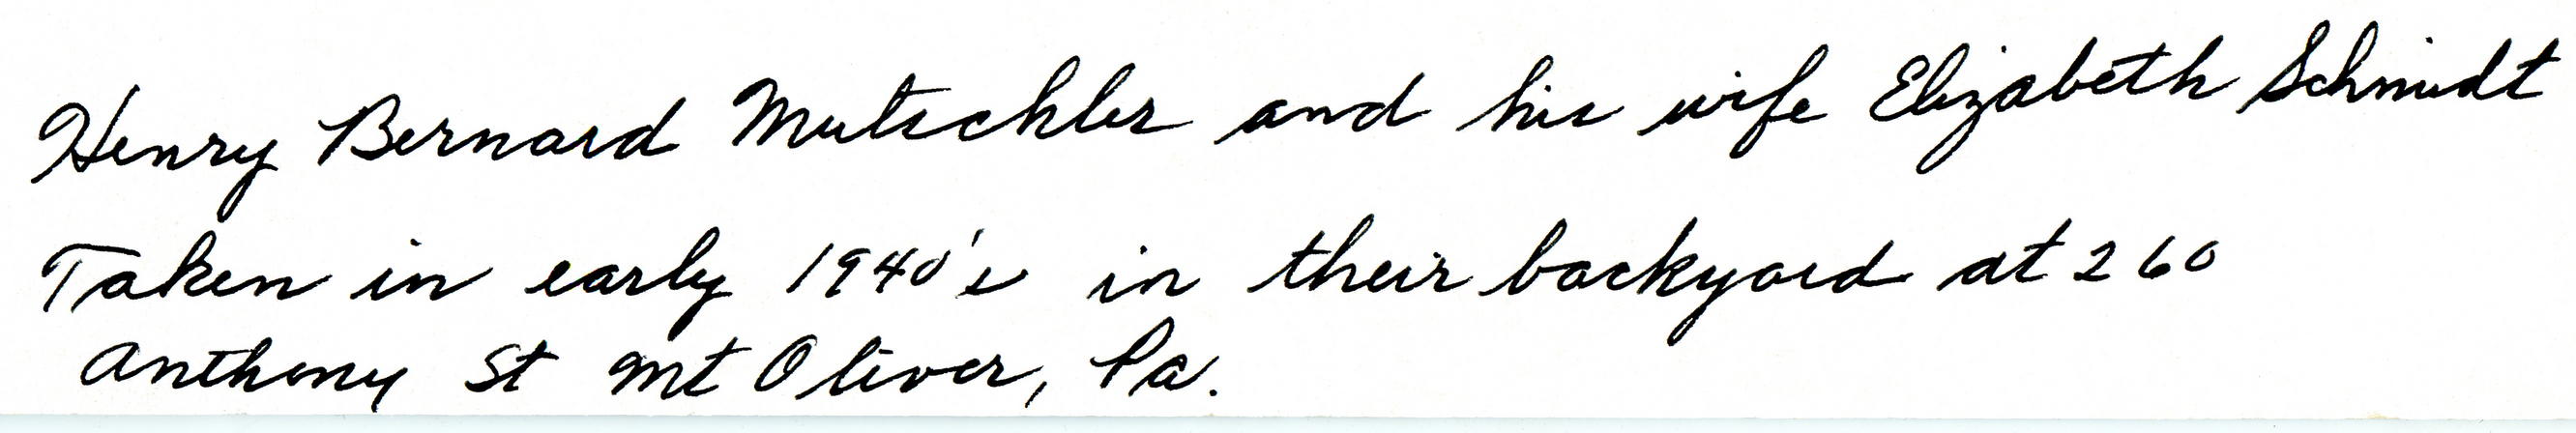 Henry Bernard Mutschler and his wife Elizabeth Schmidt
Taken in early 1940's in their backyard at 260
Anthony St Mt Oliver, Pa.